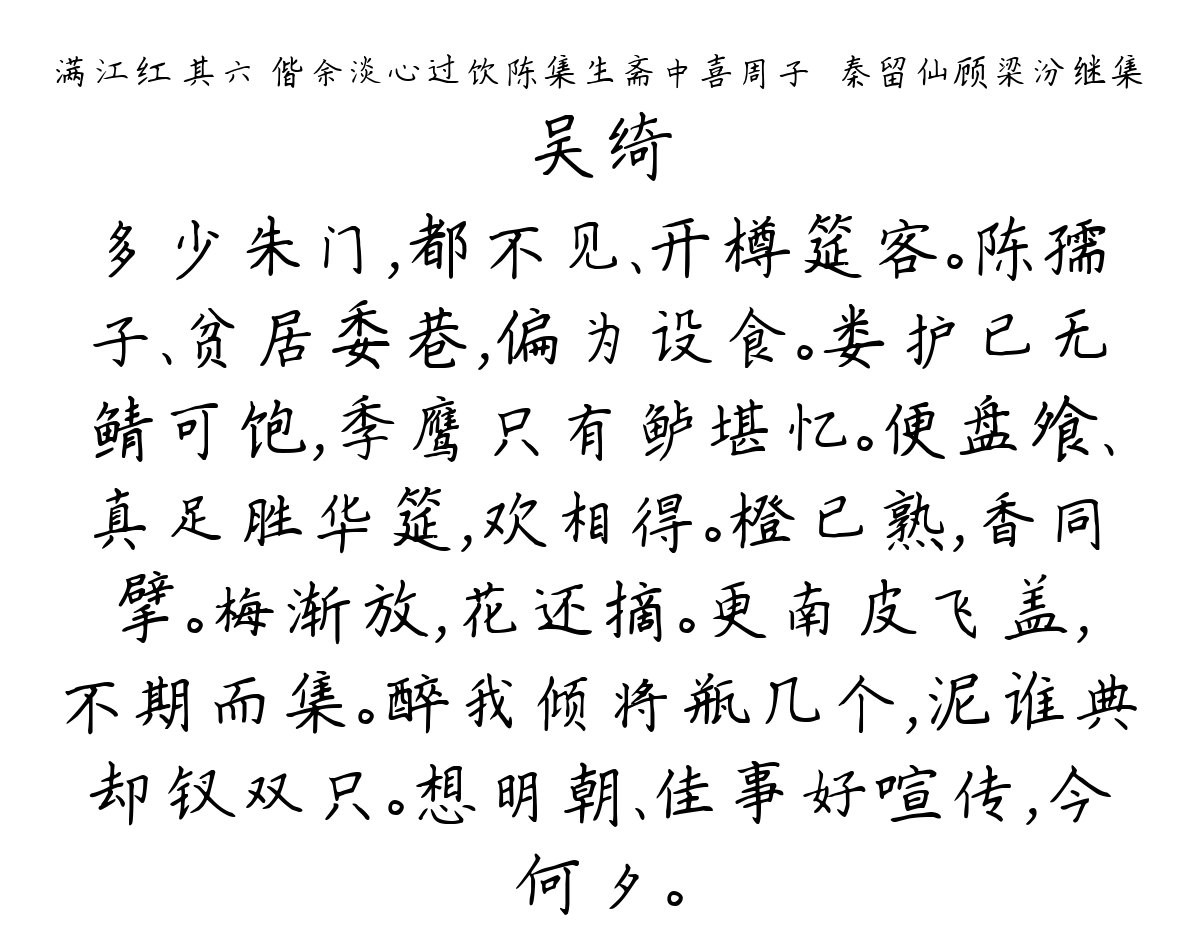 满江红 其六 偕余淡心过饮陈集生斋中喜周子 秦留仙顾梁汾继集
吴绮
多少朱门,都不见、开樽筵客。陈孺
子、贫居委巷,偏为设食。娄护已无
鲭可饱,季鹰只有鲈堪忆。便盘飧、
真足胜华筵,欢相得。橙已熟,香同
擘。梅渐放,花还摘。更南皮飞盖,
不期而集。醉我倾将瓶几个,泥谁典
却钗双只。想明朝、佳事好喧传,今
何夕。